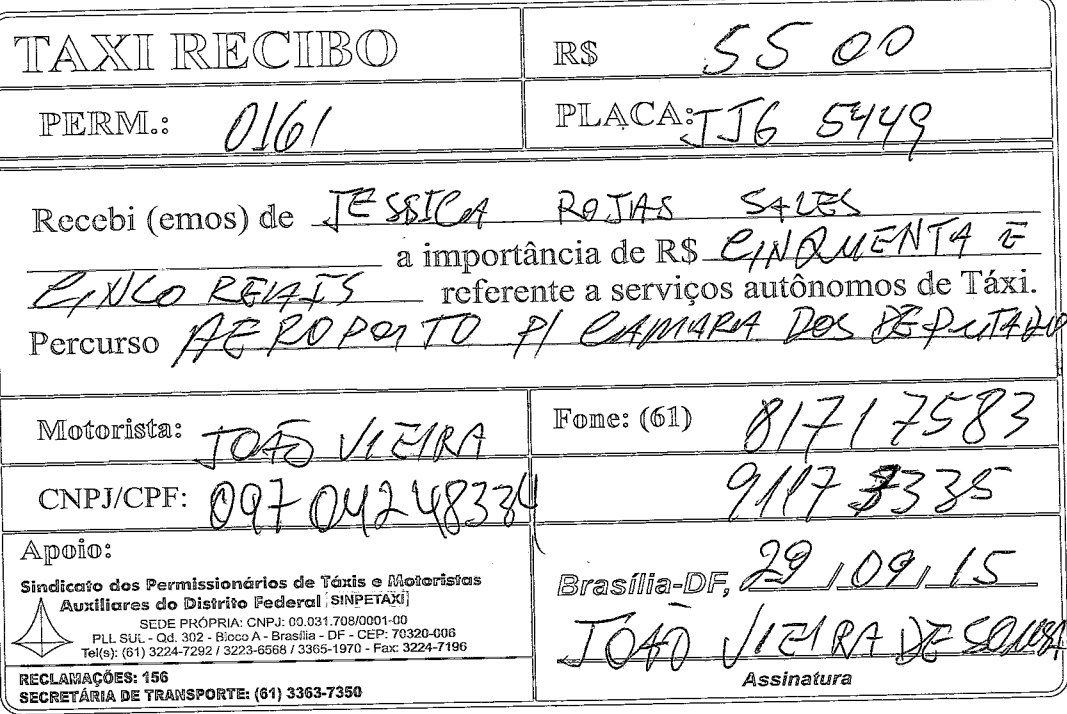 TAXI RECIBO
R$ 55 00
PERM.: 0161
PLACA: JJG 5449
Recebi (emos) de JESSICA ROJAS SALES
a importância de R$ CINQUENTA E
CINCO REAIS referente a serviços autônomos de Táxi.
Percurso AEROPORTO P/ CAMARA DOS DEPUTADO
Motorista: JOÃO VIEIRA
Fone: (61) 8171 7583
CNPJ/CPF:
9117 3335
Apoio:
Sindicato dos Permissionários de Táxis e Motoristas
Auxiliares do Distrito Federal SINPETAXI
SEDE PRÓPRIA: CNPJ: 00.031.708/0001-00
PLL SUL - Qd. 302 - Bloco A - Brasília - DF - CEP: 70320-006
Tel(s): (61) 3224-7292 / 3223-6568 / 3365-1970 - Fax: 3224-7196
RECLAMAÇÕES: 156
SECRETÁRIA DE TRANSPORTE: (61) 3363-7350
Brasília-DF, 29 / 09 / 15
JOÃO VIEIRA DE SOUSA
Assinatura